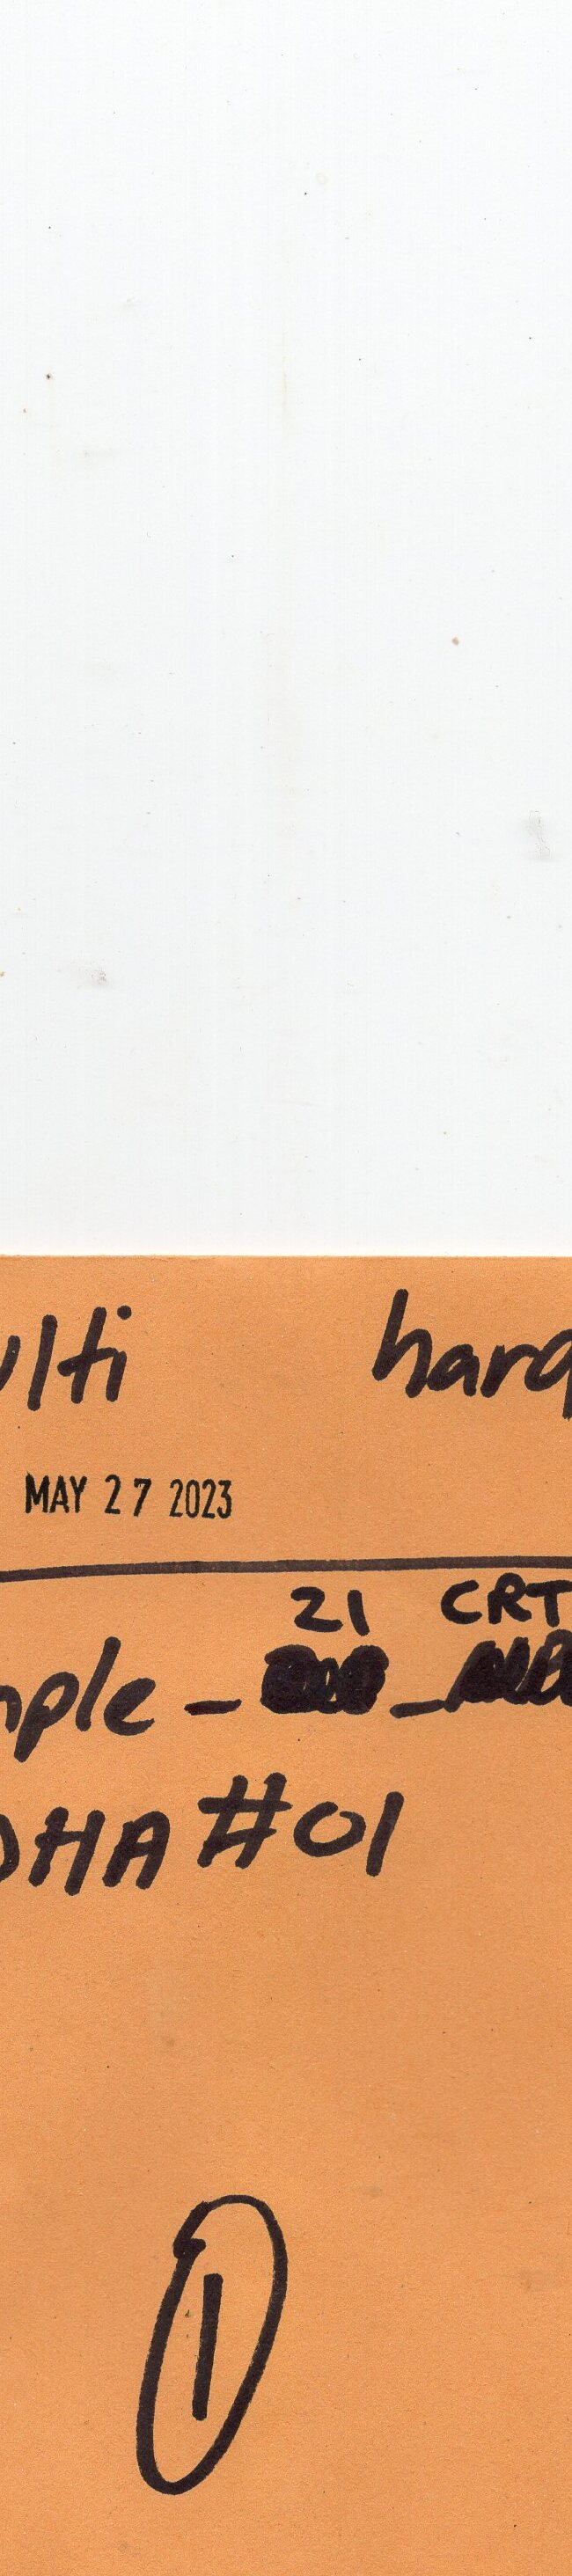 ulti hard
MAY 27 2023
21 CRT
mple - -
OHA #01
1